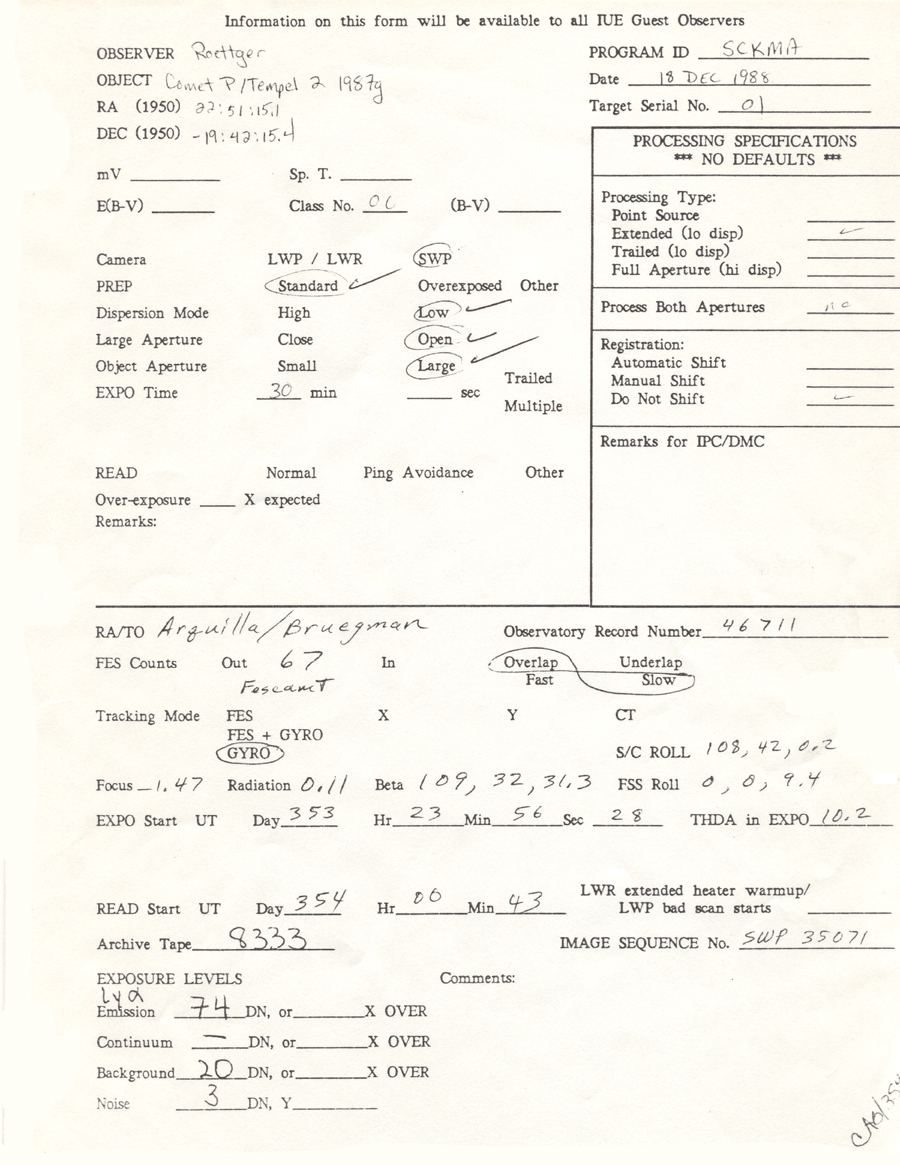 Information on this form will be available to all IUE Guest Observers
OBSERVER Roettger
PROGRAM ID SCKMA
OBJECT Comet P/Tempel 2 1987g
Date 18 DEC 1988
RA (1950) 22:51:15.1
Target Serial No. 01
DEC (1950) -19:42:15.4
PROCESSING SPECIFICATIONS
*** NO DEFAULTS ***
mV Sp. T.
E(B-V) Class No. 06 (B-V)
Processing Type:
Point Source
Extended (lo disp) ✓
Trailed (lo disp)
Full Aperture (hi disp)
Process Both Apertures no
Registration:
Automatic Shift
Manual Shift
Do Not Shift ✓
Remarks for IPC/DMC
Camera LWP / LWR SWP
PREP Standard ✓ Overexposed Other
Dispersion Mode High Low ✓
Large Aperture Close Open ✓
Object Aperture Small Large ✓
EXPO Time 30 min sec Trailed
Multiple
READ Normal Ping Avoidance Other
Over-exposure X expected
Remarks:
RA/TO Arquilla/Bruegman
Observatory Record Number 46711
FES Counts Out 67 In Overlap Underlap
Fast Slow
Tracking Mode FES X Y CT
FES + GYRO
GYRO
S/C ROLL 108, 42, 0.2
Focus -1.47 Radiation 0.11 Beta 109, 32, 31.3 FSS Roll 0, 0, 9.4
EXPO Start UT Day 353 Hr 23 Min 56 Sec 28 THDA in EXPO 10.2
READ Start UT Day 354 Hr 00 Min 43 LWR extended heater warmup/
LWP bad scan starts
Archive Tape 8333 IMAGE SEQUENCE No. SWP 35071
EXPOSURE LEVELS Comments:
Lyα
Emission 74 DN, or X OVER
Continuum — DN, or X OVER
Background 20 DN, or X OVER
Noise 3 DN, Y